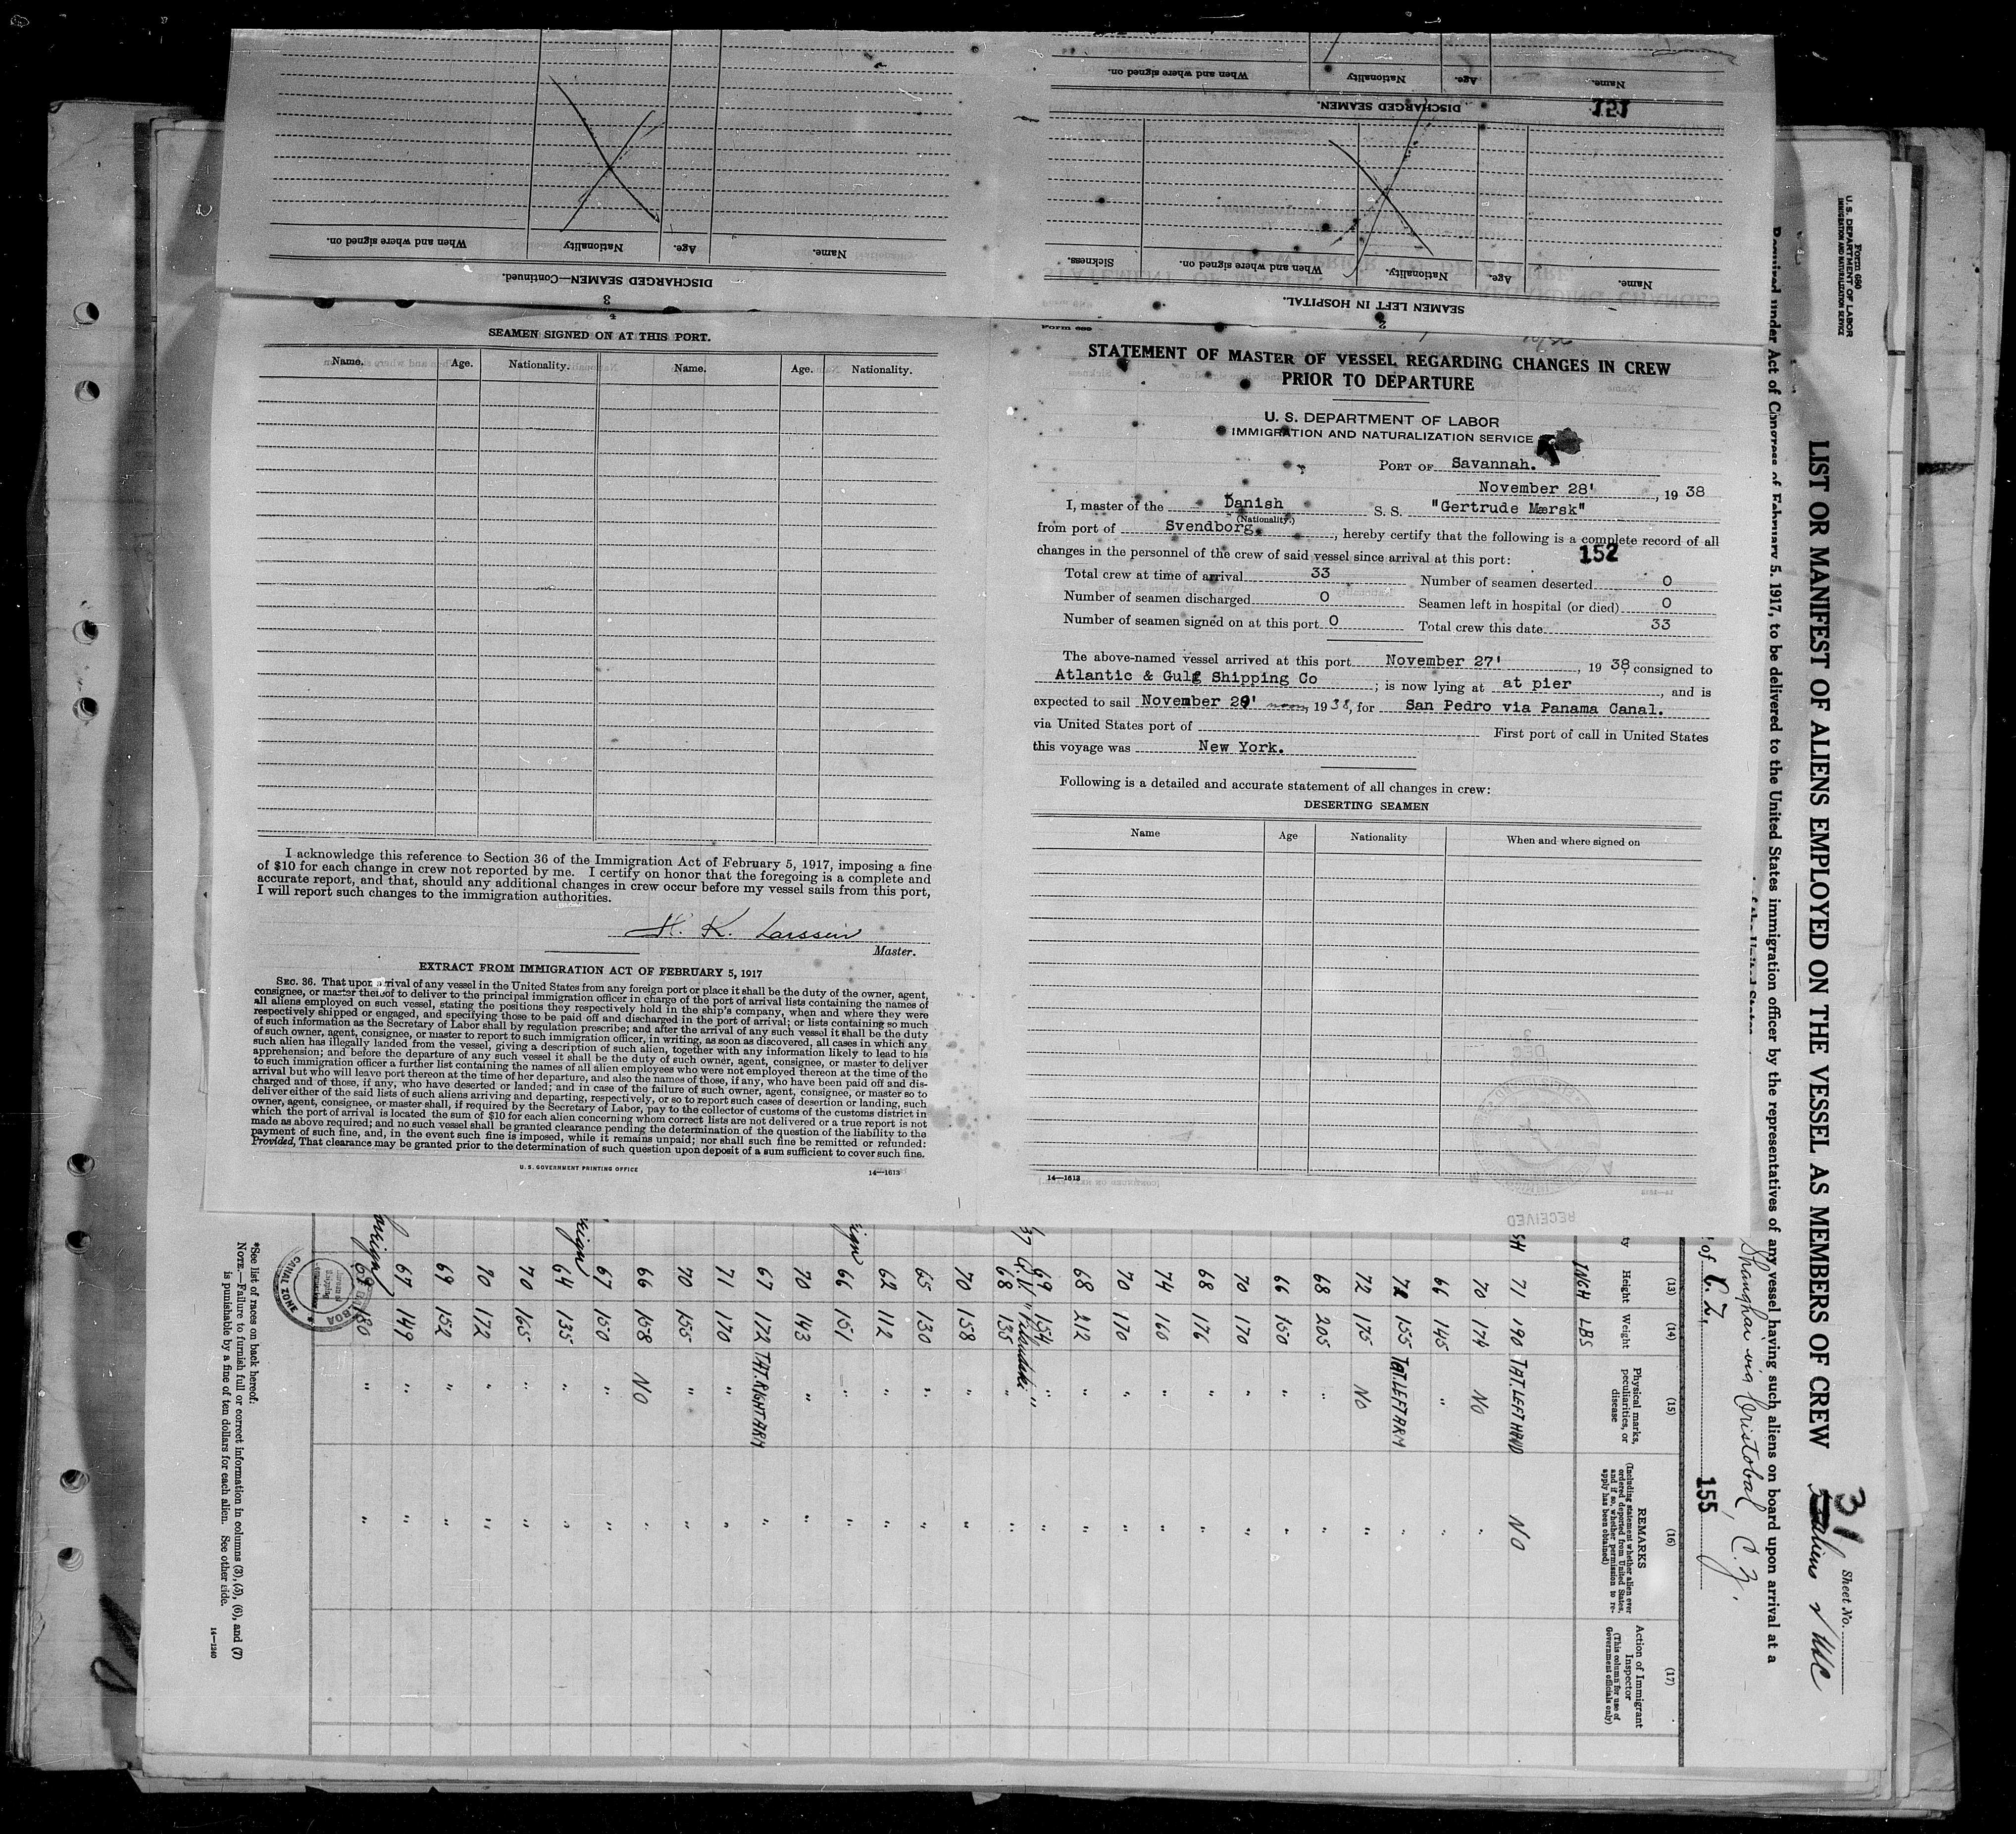 When and where signed on.
Nationality
Age.
Name.
DISCHARGED SEAMEN—Continued.
3
When and where signed on.
Nationality
Age.
Name.
DISCHARGED SEAMEN.
151
Sickness.
When and where signed on.
Nationality
Age.
Name.
SEAMEN LEFT IN HOSPITAL.
2
4
SEAMEN SIGNED ON AT THIS PORT.
Name. Age. Nationality. Name. Age. Nationality.
I acknowledge this reference to Section 36 of the Immigration Act of February 5, 1917, imposing a fine
of $10 for each change in crew not reported by me. I certify on honor that the foregoing is a complete and
accurate report, and that, should any additional changes in crew occur before my vessel sails from this port,
I will report such changes to the immigration authorities.
H. K. Larssen
Master.
EXTRACT FROM IMMIGRATION ACT OF FEBRUARY 5, 1917
SEC. 36. That upon arrival of any vessel in the United States from any foreign port or place it shall be the duty of the owner, agent,
consignee, or master thereof to deliver to the principal immigration officer in charge of the port of arrival lists containing the names of
all aliens employed on such vessel, stating the positions they respectively hold in the ship's company, when and where they were
respectively shipped or engaged, and specifying those to be paid off and discharged in the port of arrival; or lists containing so much
of such information as the Secretary of Labor shall by regulation prescribe; and after the arrival of any such vessel it shall be the duty
of such owner, agent, consignee, or master to report to such immigration officer, in writing, as soon as discovered, all cases in which any
such alien has illegally landed from the vessel, giving a description of such alien, together with any information likely to lead to his
apprehension; and before the departure of any such vessel it shall be the duty of such owner, agent, consignee, or master to deliver
to such immigration officer a further list containing the names of all alien employees who were not employed thereon at the time of the
arrival but who will leave port thereon at the time of her departure, and also the names of those, if any, who have been paid off and dis-
charged and of those, if any, who have deserted or landed; and in case of the failure of such owner, agent, consignee, or master so to
deliver either of the said lists of such aliens arriving and departing, respectively, or so to report such cases of desertion or landing, such
owner, agent, consignee, or master shall, if required by the Secretary of Labor, pay to the collector of customs of the customs district in
which the port of arrival is located the sum of $10 for each alien concerning whom correct lists are not delivered or a true report is not
made as above required; and no such vessel shall be granted clearance pending the determination of the question of the liability to the
payment of such fine, and, in the event such fine is imposed, while it remains unpaid; nor shall such fine be remitted or refunded:
Provided, That clearance may be granted prior to the determination of such question upon deposit of a sum sufficient to cover such fine.
U. S. GOVERNMENT PRINTING OFFICE 14—1613
Form 689
STATEMENT OF MASTER OF VESSEL REGARDING CHANGES IN CREW
PRIOR TO DEPARTURE
U. S. DEPARTMENT OF LABOR
IMMIGRATION AND NATURALIZATION SERVICE
PORT OF Savannah.
November 28' , 19 38
I, master of the Danish S. S. "Gertrude Mærsk"
(Nationality.)
from port of Svendborg. , hereby certify that the following is a complete record of all
changes in the personnel of the crew of said vessel since arrival at this port: 152
Total crew at time of arrival 33 Number of seamen deserted 0
Number of seamen discharged 0 Seamen left in hospital (or died) 0
Number of seamen signed on at this port 0 Total crew this date 33
The above-named vessel arrived at this port November 27' , 19 38, consigned to
Atlantic & Gulf Shipping Co ; is now lying at at pier , and is
expected to sail November 29' noon, 1938, for San Pedro via Panama Canal.
via United States port of First port of call in United States
this voyage was New York.
Following is a detailed and accurate statement of all changes in crew:
DESERTING SEAMEN
Name Age Nationality When and where signed on
14—1613
RECEIVED
DEC
Form 680
U. S. DEPARTMENT OF LABOR
IMMIGRATION AND NATURALIZATION SERVICE
Sheet No.
LIST OR MANIFEST OF ALIENS EMPLOYED ON THE VESSEL AS MEMBERS OF CREW
31 aliens
Required under Act of Congress of February 5, 1917, to be delivered to the United States immigration officer by the representatives of any vessel having such aliens on board upon arrival at a
of the United States
Shanghai via Cristobal, C.Z.
of C. Z.
155
(13) (14) (15) (16) (17)
Height Weight
Physical marks, peculiarities, or disease
REMARKS
(Including statement whether alien ever ordered deported from United States, and if so, whether permission to re-apply has been obtained)
Action of Immigrant Inspector
(This column for use of Government officials only)
INGH LBS
SH 71 190 TAT. LEFT HAND NO
70 174 NO "
66 145 " "
72 155 TAT. LEFT ARM "
72 175 NO "
68 205 " "
66 150 " "
70 170 " "
68 176 " "
74 160 " "
70 170 " "
68 212 " "
69 154 " "
68 135 " "
70 158 " "
65 130 " "
62 112 " "
66 151 " "
70 143 " "
67 172 TAT. RIGHT ARM "
71 170 " "
70 155 " "
66 158 NO "
67 150 "
64 135 " "
70 165 " "
70 172 " "
69 152 " "
67 149 " "
68 180 " "
BALBOA
CANAL ZONE
*See list of races on back hereof.
NOTE.—Failure to furnish full or correct information in columns (3), (5), (6), and (7)
is punishable by a fine of ten dollars for each alien. See other side.
14—1240